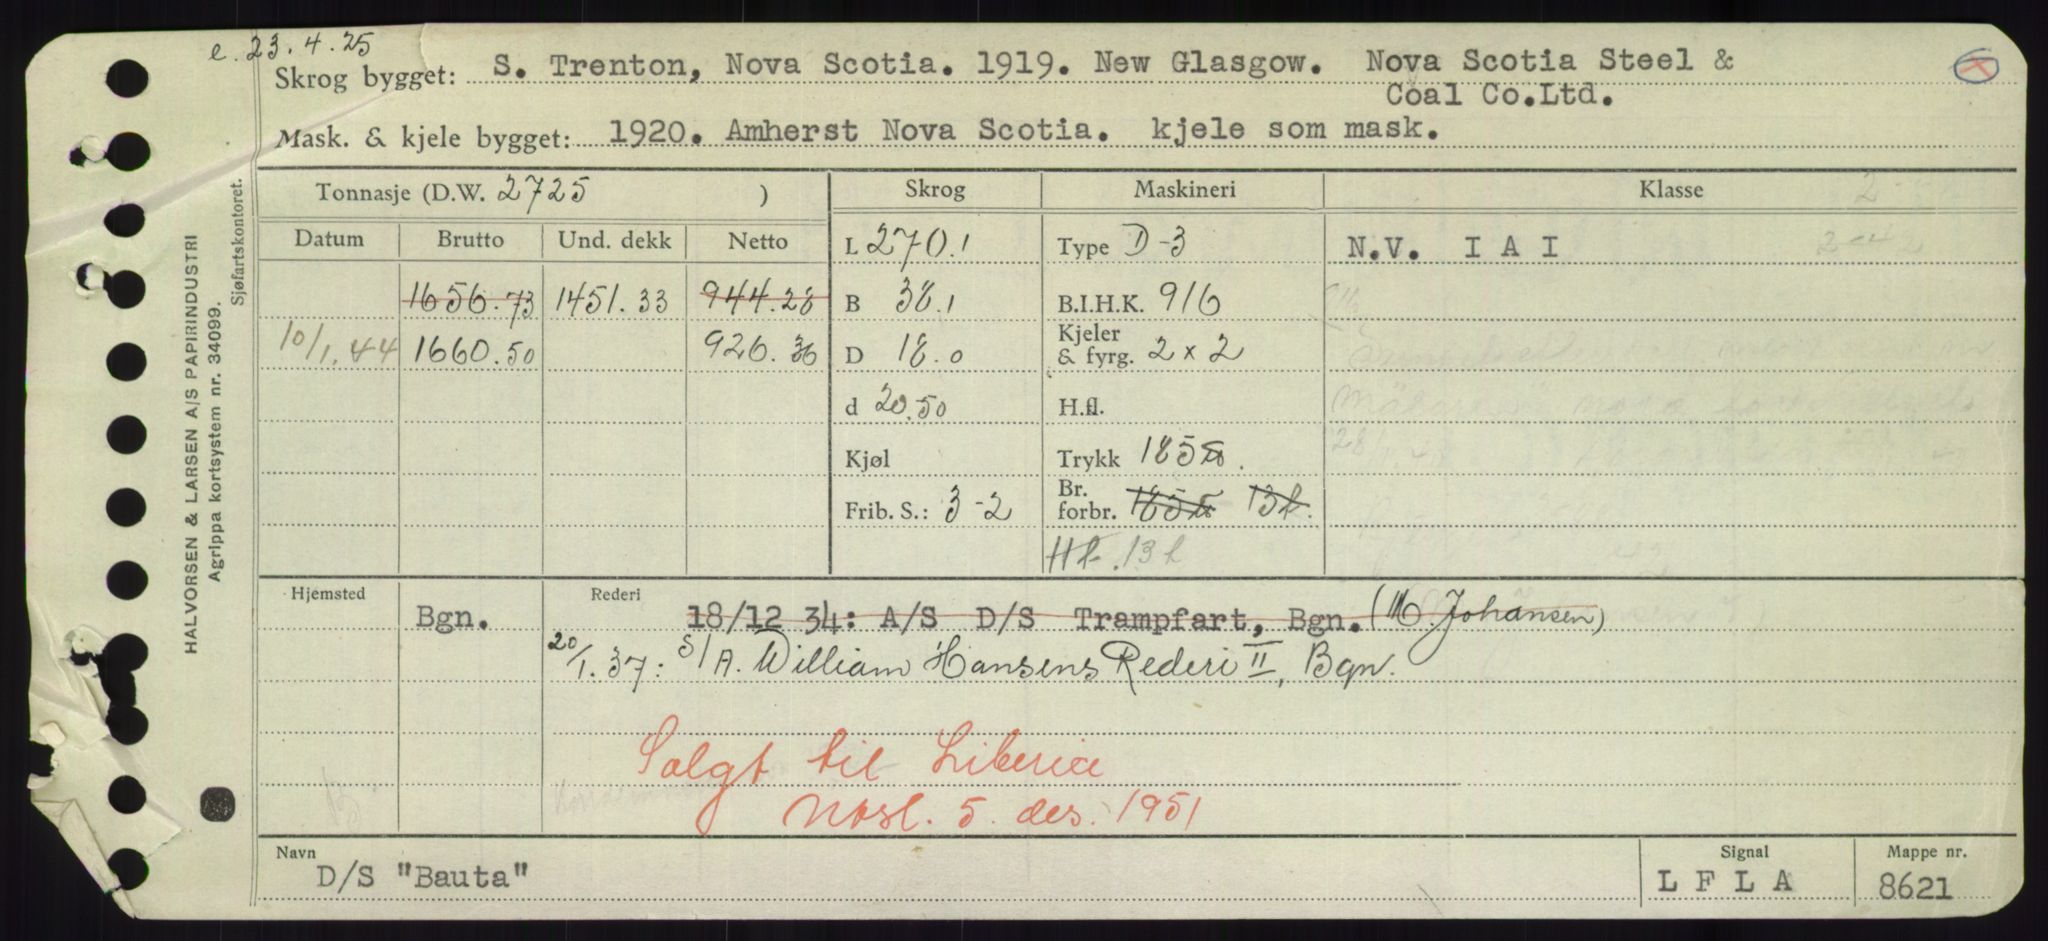 e. 23.4.25
Skrog bygget: S. Trenton, Nova Scotia. 1919. New Glasgow. Nova Scotia Steel &
Coal Co.Ltd.
Mask. & kjele bygget: 1920. Amherst Nova Scotia. kjele som mask.
Tonnasje (D.W. 2725 ) Skrog Maskineri Klasse 2
Datum Brutto Und. dekk Netto L 270.1 Type D-3 N.V. I A I
1656.73 1451.33 944.28 B 38.1 B.I.H.K. 916
10/1.44 1660.50 926.36 D 18.0 Kjeler
& fyrg. 2 x 2
d 20.50 H.fl.
Kjøl Trykk 185
Frib. S.: 3-2 Br.
forbr. 185 13 t.
11 t. 13 t
Hjemsted Bgn. Rederi 18/12 34: A/S D/S Trampfart, Bgn. (M. Johansen)
20/1.37: S/A. William Hansens Rederi II, Bgn.
Solgt til Liberia
Nosl. 5. des. 1951
Navn D/S "Bauta" Signal L F L A Mappe nr. 8621
HALVORSEN & LARSEN A/S PAPIRINDUSTRI
Agrippa kortsystem nr. 34099.
Sjøfartskontoret.